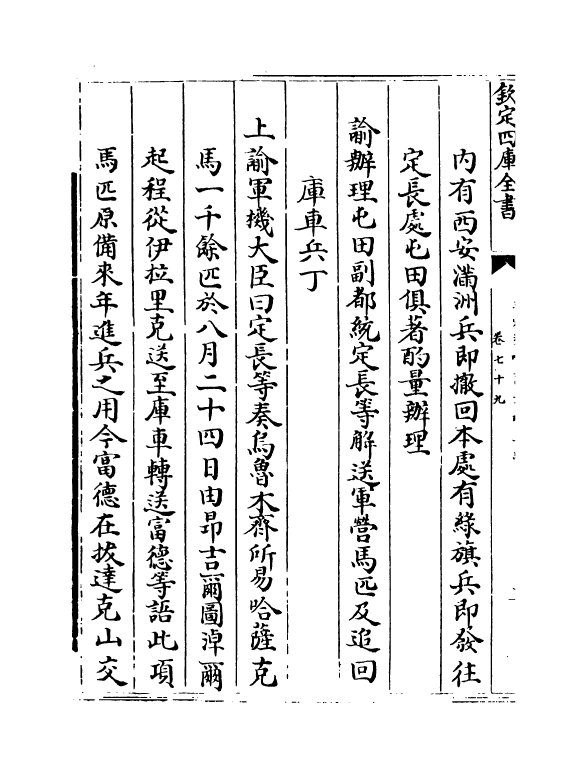 欽定四庫全書
卷七十九
内有西安滿洲兵即撤回本處有綠旗兵即發往
定長處屯田俱著酌量辦理
諭辦理屯田副都統定長等解送軍營馬匹及追回
庫車兵丁
上諭軍機大臣曰定長等奏烏魯木齊所易哈薩克
馬一千餘匹於八月二十四日由昂吉爾圖淖爾
起程從伊拉里克送至庫車轉送富德等語此項
馬匹原備來年進兵之用今富德在拔達克山交